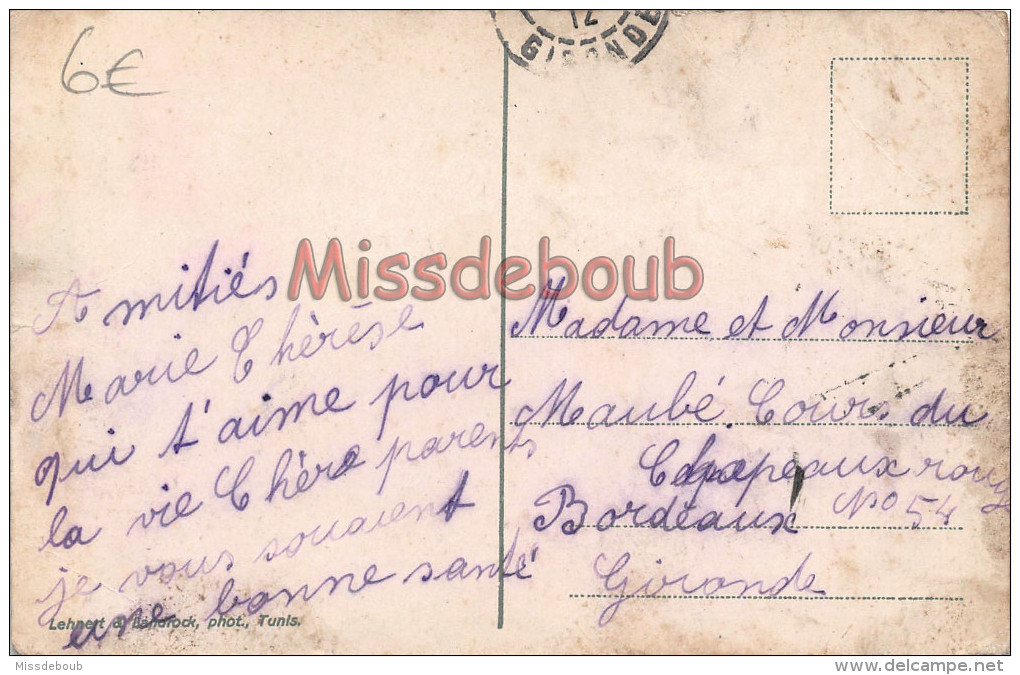 6€
12
GIRONDE
Missdeboub
Amitiés
Marie Thérèse
qui t'aime pour
la vie Chère parents
je vous souaient
une bonne santé
Lehnert & Landrock, phot., Tunis.
Madame et Monsieur
Maubé. Cours du
Chapeaux rouge
Bordeaux No 54
Gironde
Missdeboub
www.delcampe.net